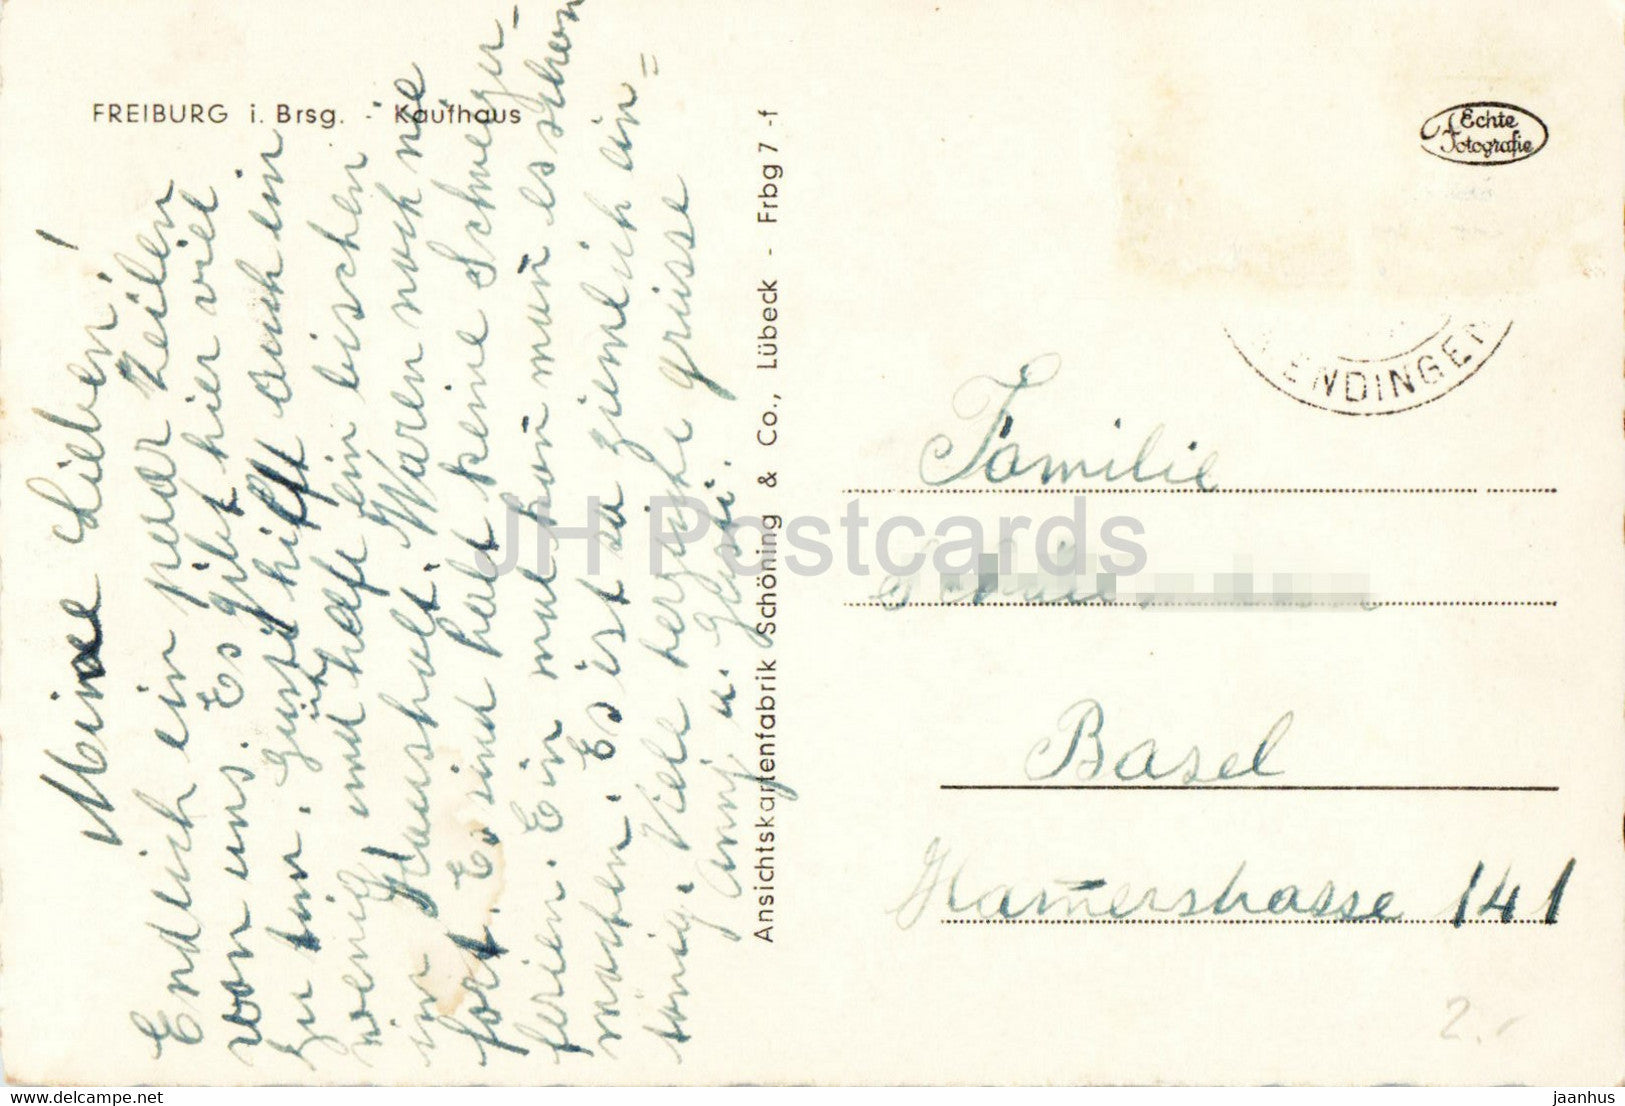 FREIBURG i. Brsg. - Kaufhaus
Meine Lieben!
Endlich ein paar Zeilen
von uns. Es gibt hier viel
zu tun. Gusti hilft auch ein
wenig und hilft ein bischen
im Haushalt. Waren noch nie
fort. Es sind halt keine Schweizer-
ferien. Ein mal kon̄ man es schon
machen. Es ist so ziemlich ein=
tönig. Viele herzliche grüsse
Anny u. Gusti.
Ansichtskartenfabrik Schöning & Co., Lübeck - Frbg 7 -f
Echte
Fotografie
ENDINGEN
Familie
Basel
Ham̄erstrasse 141
2.-
JH Postcards
https://www.jh-postcards.com
jaanhus